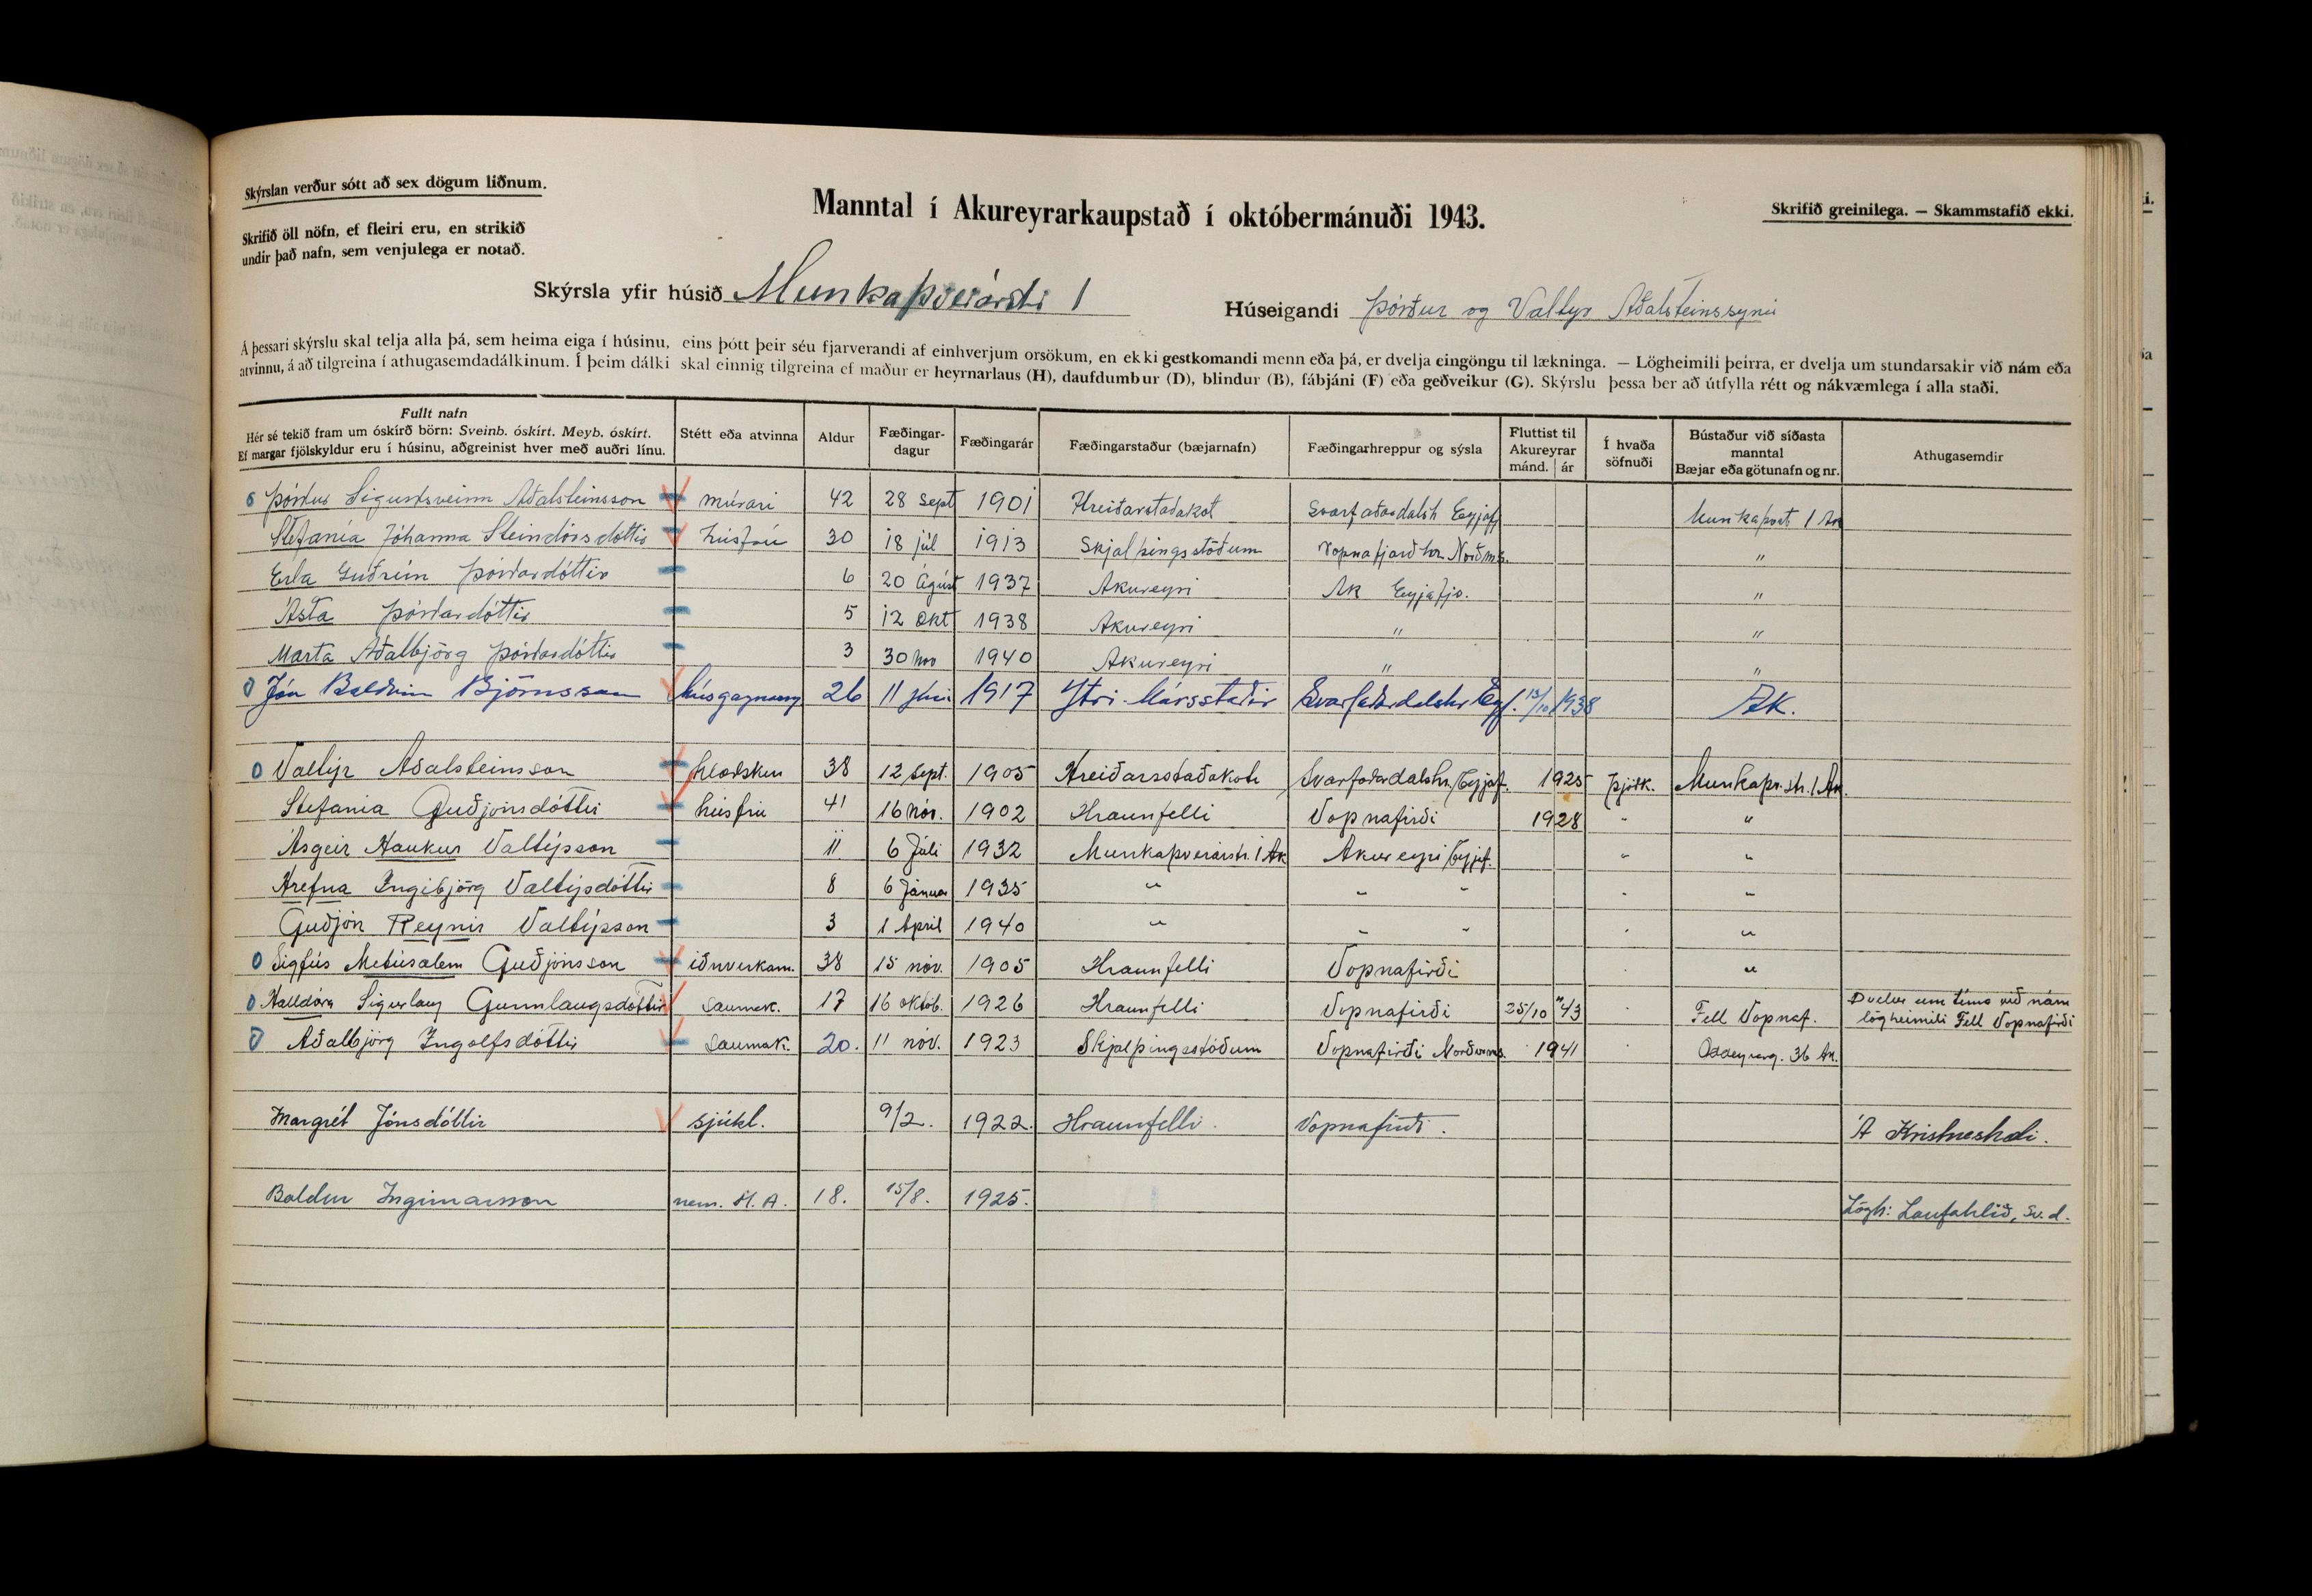 Skýrslan verður sótt að sex dögum liðnum.
Manntal í Akureyrarkaupstað í októbermánuði 1943.
Skrifið greinilega. — Skammstafið ekki.
Skrifið öll nöfn, ef fleiri eru, en strikið
undir það nafn, sem venjulega er notað.
Skýrsla yfir húsið Munkaþverárstr 1
Húseigandi Þórður og Valtýr Aðalsteinssynir
Á þessari skýrslu skal telja alla þá, sem heima eiga í húsinu, eins þótt þeir séu fjarverandi af einhverjum orsökum, en ekki gestkomandi menn eða þá, er dvelja eingöngu til lækninga. — Lögheimili þeirra, er dvelja um stundarsakir við nám eða
atvinnu, á að tilgreina í athugasemdadálkinum. Í þeim dálki skal einnig tilgreina ef maður er heyrnarlaus (H), daufdumbur (D), blindur (B), fábjáni (F) eða geðveikur (G). Skýrslu þessa ber að útfylla rétt og nákvæmlega í alla staði.
Fullt nafn
Hér sé tekið fram um óskírð börn: Sveinb. óskírt. Meyb. óskírt.
Ef margar fjölskyldur eru í húsinu, aðgreinist hver með auðri línu.
Stétt eða atvinna
Aldur
Fæðingar-
dagur
Fæðingarár
Fæðingarstaður (bæjarnafn)
Fæðingarhreppur og sýsla
Fluttist til
Akureyrar
mánd. ár
Í hvaða
söfnuði
Bústaður við síðasta
manntal
Bæjar eða götunafn og nr.
Athugasemdir
Þórður Sigurðsveinn Aðalsteinsson múrari 42 28 sept 1901 Hreiðarstaðakot Svarfaðardalsh Eyjafj Munkaþvst 1 Ak
Stefanía Jóhanna Steindórsdóttir húsfrú 30 18 júl 1913 Skjalþingsstöðum Vopnafjarðhr Norðms. "
Erla Guðrún Þórðardóttir 6 20 Ágúst 1937 Akureyri Ak Eyjafjs. "
Ásta Þórðardóttir 5 12 Okt 1938 Akureyri " "
Marta Aðalbjörg Þórðardóttir 3 30 nov 1940 Akureyri " "
Jón Baldvin Björnsson húsgagnasm 26 11 júní 1917 Ytri-Másstaðir Svarfaðardalshr Eyf. 13/10 1938 AK.
Valtýr Aðalsteinsson klæðsken 38 12 sept. 1905 Hreiðarsstaðakoti Svarfaðardalshr./Eyjaf. 1925 þjóðk. Munkaþv.str. 1 Ak.
Stefania Guðjónsdóttir húsfrú 41 16 nóv. 1902 Hraunfelli Vopnafirði 1928 " "
Ásgeir Haukur Valtýsson 11 6 Júli 1932 Munkaþverárstr. 1 Ak Akureyri/Eyjaf. " "
Hrefna Ingibjörg Valtýsdóttir 8 6 Januar 1935 " " " " "
Guðjón Reynir Valtýsson 3 1 April 1940 " " " " "
Sigfús Metúsalem Guðjónsson iðnverkam. 38 15 nóv. 1905 Hraunfelli Vopnafirði " "
Halldóra Sigurlaug Gunnlaugsdóttir saumak. 17 16 októb. 1926 Hraunfelli Vopnafirði 25/10 "43 " Fell Vopnaf. Dvelur um tíma við nám
lögheimili Fell Vopnafirði
Aðalbjörg Ingolfsdóttir saumak. 20. 11 nóv. 1923 Skjalþingsstöðum Vopnafirði Norðurms. 1941 " Oddeyrarg. 36 Ak.
Margrét Jónsdóttir sjúkl. 9/2. 1922. Hraunfelli. Vopnafirði. Á Kristneshæli.
Baldur Ingimarsson nem. M.A. 18. 15/8. 1925. Lögh: Laufahlíð, Sv.d.